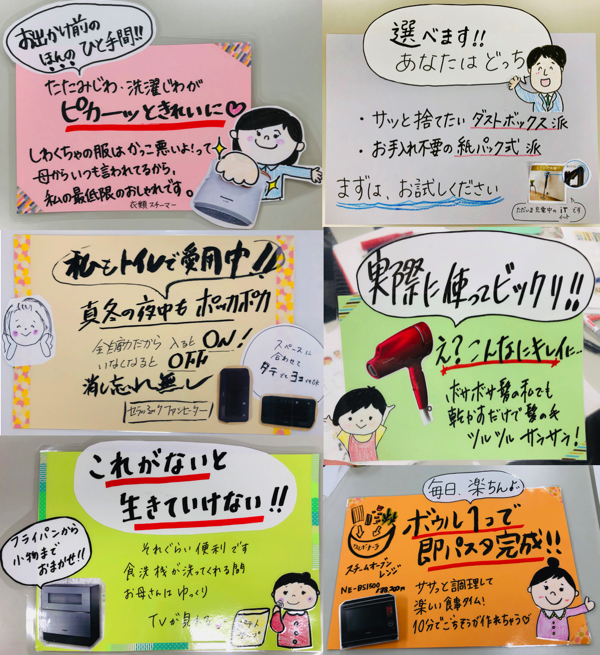 お出かけ前の
ほんのひと手間!!
たたみじわ・洗濯じわが
ピカーッときれいに♡
しわくちゃの服はかっこ悪いよ!って
母からいつも言われてるから、
私の最低限のおしゃれです。
衣類スチーマー
選べます!!
あなたはどっち
・サッと捨てたい ダストボックス派
・お手入れ不要の 紙パック式 派
まずは、お試しください
ただいま充電中の
私もトイレで愛用中!!
真冬の夜中も ポッカポカ
全自動だから 入ると ON!
いなくなると OFF
消し忘れ無し
セラミックファンヒーター
スペースに
合わせて
タテでもヨコでもOK
実際に使ってビックリ!!
え?こんなにキレイに…
ボサボサ髪の私でも
乾かすだけで髪の毛
ツルツル サラサラ!
これがないと
生きていけない!!
フライパンから
小物まで
おまかせ!!
それぐらい便利です
食洗機が洗ってくれる間
お母さんはゆっくり
TVが見れ
毎日、楽ちん♪
ボウル1つで
即パスタ完成!!
スチームオーブン
レンジ
NE-BS1500
ササッと調理して
楽しい食事タイム!
10分でごちそうが作れちゃう♡